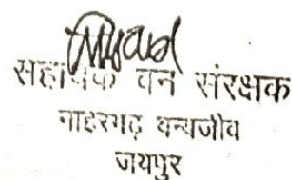 सहायक वन संरक्षक
नाहरगढ़ वन्यजीव
जयपुर